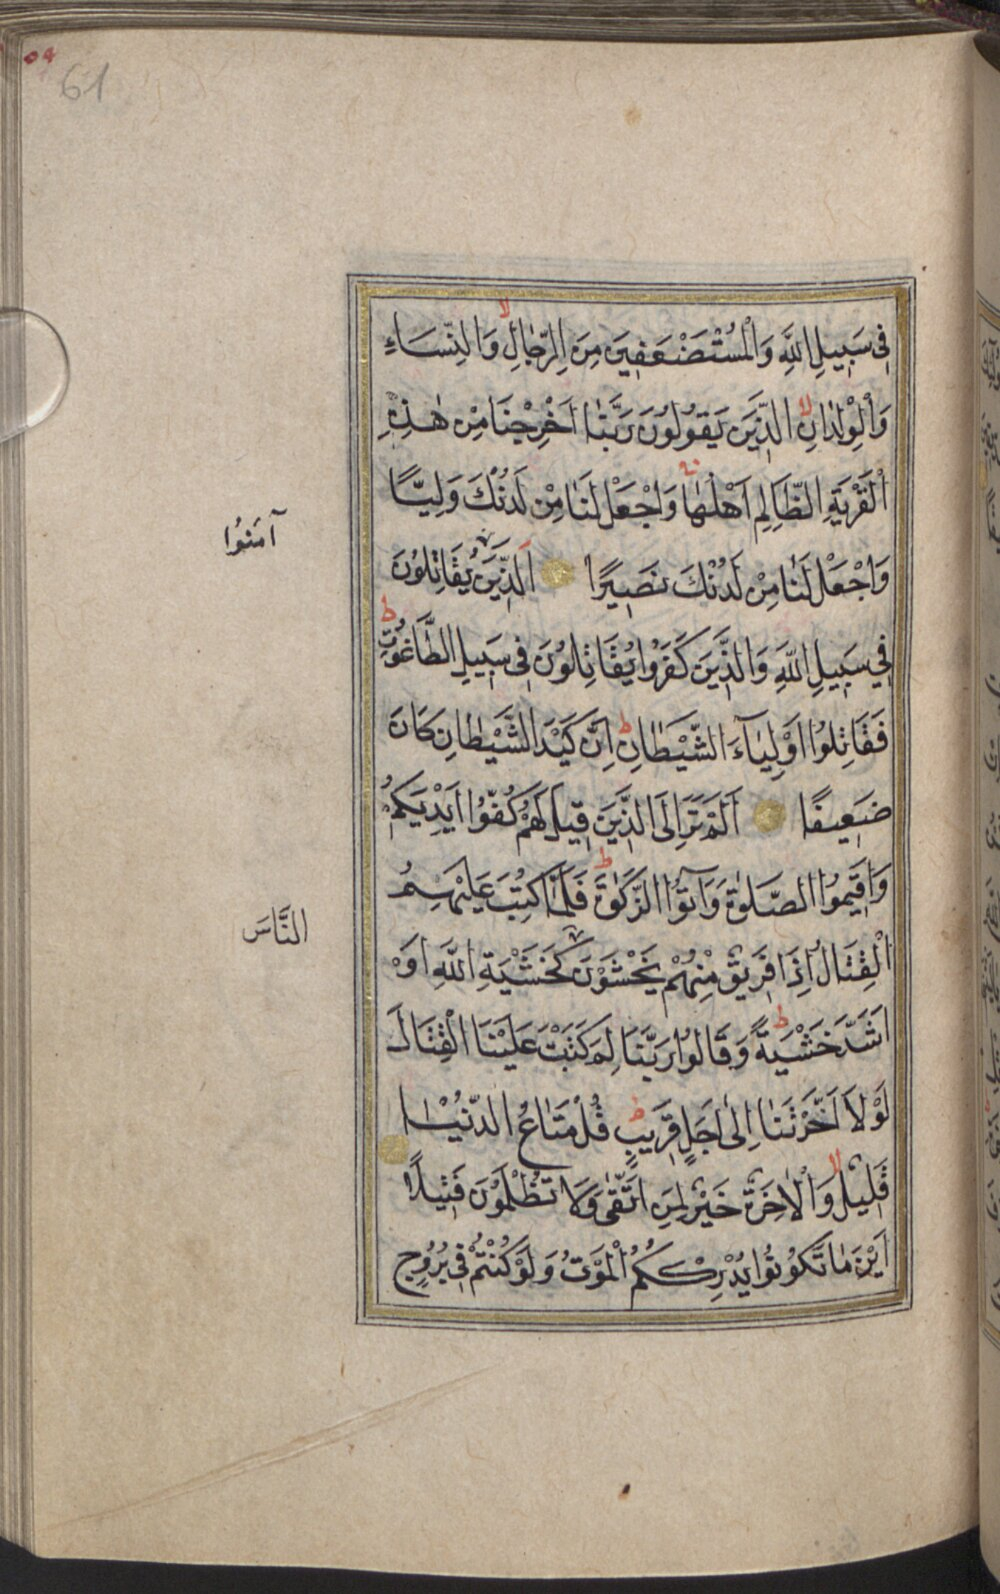 ٥٩
61
فِي سَبِيلِ اللَّهِ وَالْمُسْتَضْعَفِينَ مِنَ الرِّجَالِ لا وَالنِّسَاءِ
وَالْوِلْدَانِ لا الَّذِينَ يَقُولُونَ رَبَّنَا أَخْرِجْنَا مِنْ هٰذِهِ
الْقَرْيَةِ الظَّالِمِ اَهْلُهَا ج وَاجْعَلْ لَنَا مِنْ لَدُنْكَ وَلِيًّا
وَاجْعَلْ لَنَا مِنْ لَدُنْكَ نَصِيرًا اَلَّذِينَ يُقَاتِلُونَ
آمَنُوا
فِي سَبِيلِ اللَّهِ وَالَّذِينَ كَفَرُوا يُقَاتِلُونَ فِي سَبِيلِ الطَّاغُوتِ ط
فَقَاتِلُوا اَوْلِيَآءَ الشَّيْطَانِ ط اِنَّ كَيْدَ الشَّيْطَانِ كَانَ
ضَعِيفًا اَلَمْ تَرَ اِلَى الَّذِينَ قِيلَ لَهُمْ كُفُّوا اَيْدِيَكُمْ
وَاَقِيمُوا الصَّلٰوةَ وَآتُوا الزَّكٰوةَ ط فَلَمَّا كُتِبَ عَلَيْهِمُ
الْقِتَالُ اِذَا فَرِيقٌ مِنْهُمْ يَخْشَوْنَ كَخَشْيَةِ اللَّهِ اَوْ
النَّاسَ
اَشَدَّ خَشْيَةً ط وَقَالُوا رَبَّنَا لِمَ كَتَبْتَ عَلَيْنَا الْقِتَالَ
لَوْلَا اَخَّرْتَنَا اِلٰى اَجَلٍ قَرِيبٍ ط قُلْ مَتَاعُ الدُّنْيَا
قَلِيلٌ وَالْاٰخِرَةُ خَيْرٌ لِمَنِ اتَّقٰى لا وَلَا تُظْلَمُونَ فَتِيلًا
اَيْنَ مَا تَكُونُوا يُدْرِكْكُمُ الْمَوْتُ وَلَوْ كُنْتُمْ فِي بُرُوجٍ